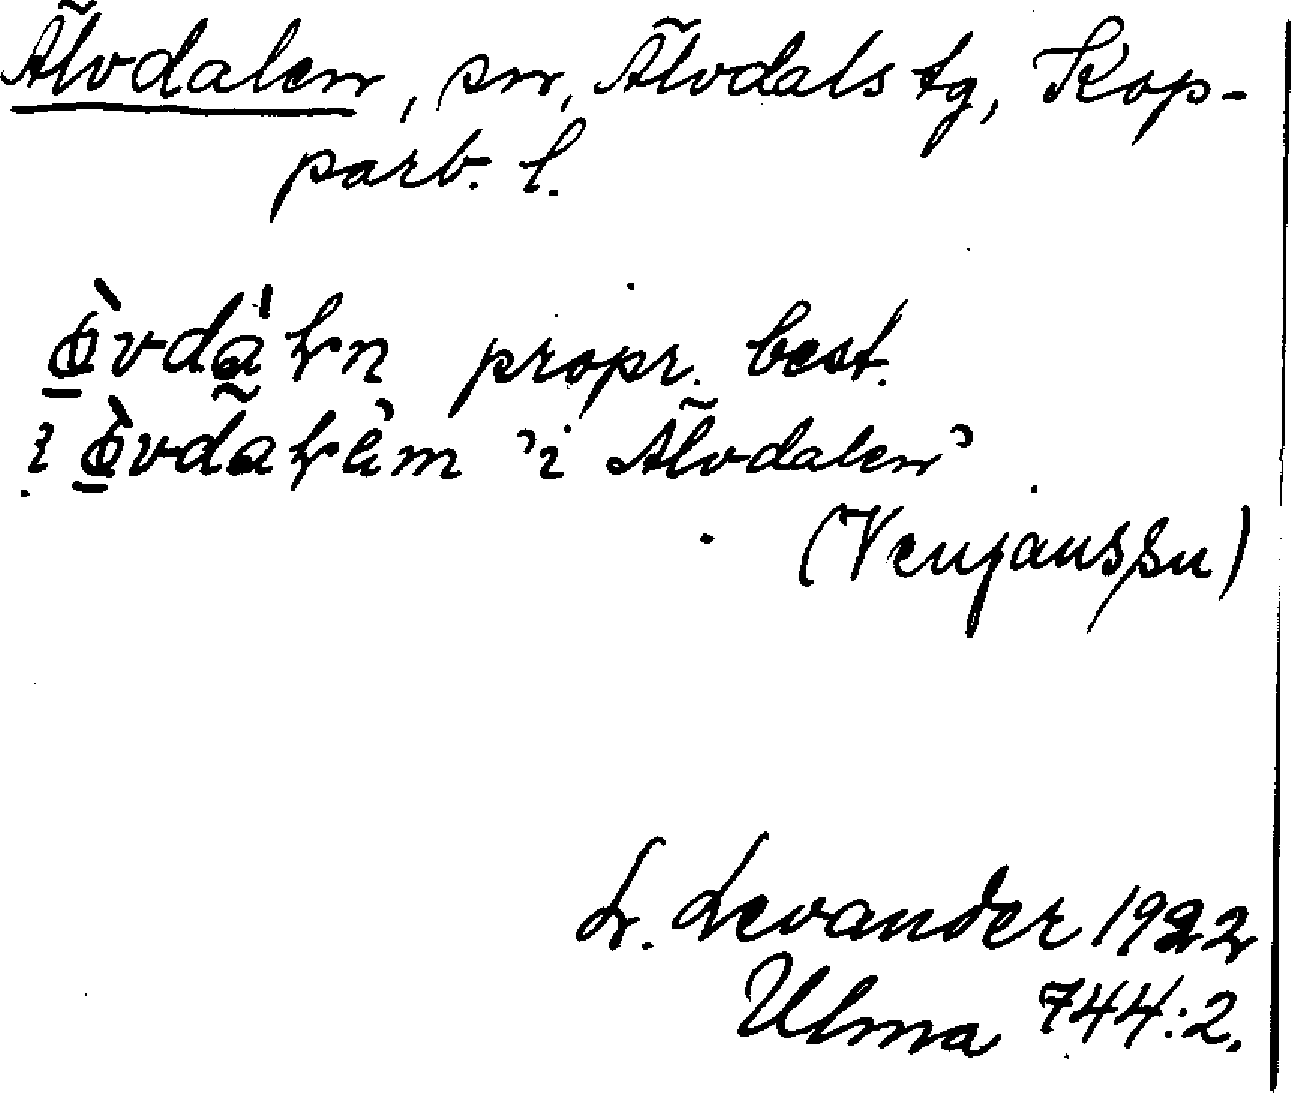 Älvdalen, sn, Älvdals tg, Kop-
parb. l.
propr. best.
i "i Älvdalen"
(Venjanssn)
L. Levander 1922
Ulma 744:2.